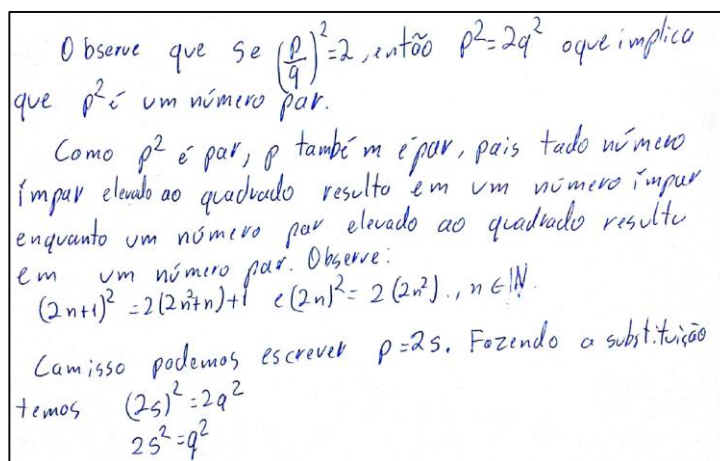 Observe que se (p/q)²=2, então p²=2q² o que implica
que p² é um número par.
Como p² é par, p também é par, pois todo número
ímpar elevado ao quadrado resulta em um número ímpar
enquanto um número par elevado ao quadrado resulta
em um número par. Observe:
(2n+1)² = 2(2n²+n)+1 e (2n)² = 2(2n²)., n ∈ ℕ.
Com isso podemos escrever p=2s. Fazendo a substituição
temos (2s)² = 2q²
2s² = q²